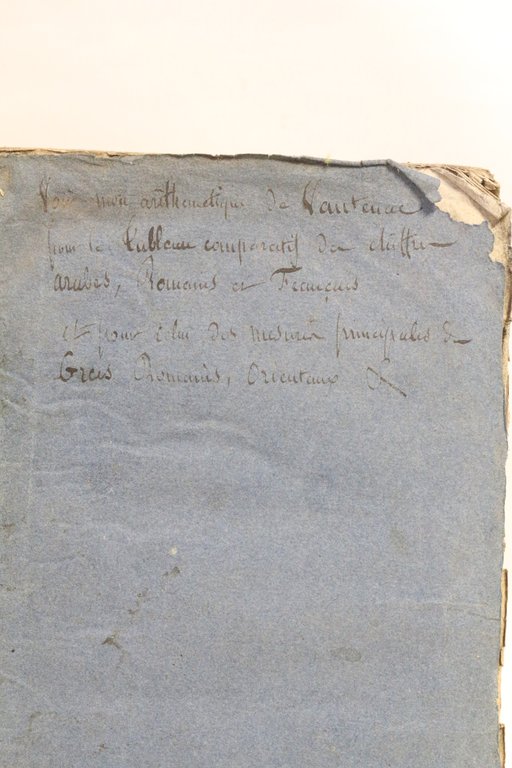 Voir mon arithmetique de Vantenac
pour le Tableau comparatif des chiffres
arabes, Romains et Français
et pour celui des mesures principales des
Grecs Romains, Orientaux &